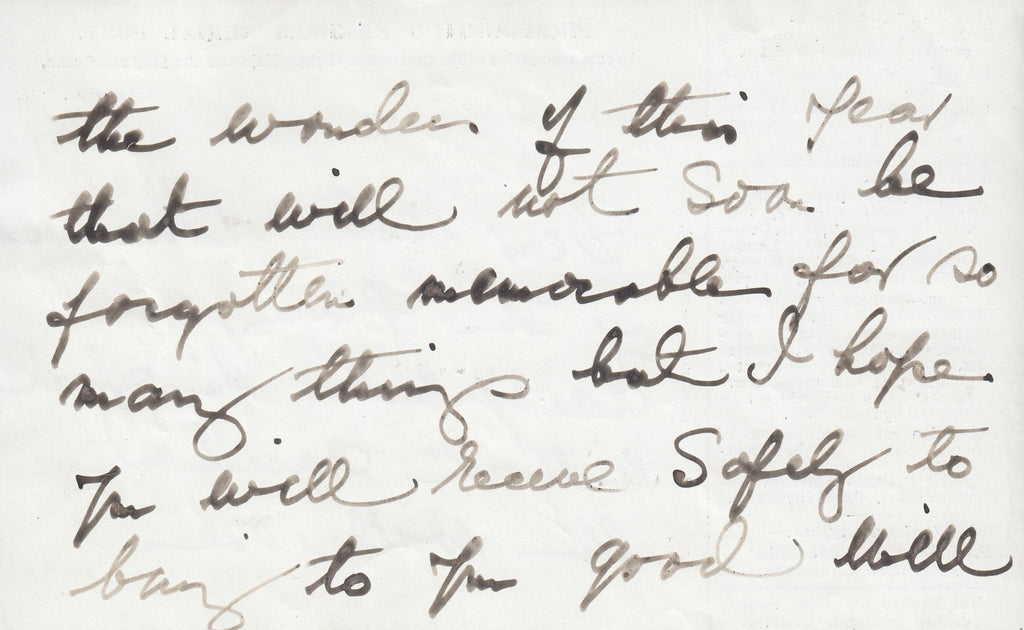 the wonder of this year
that will not soon be
forgotten memorable for so
many things but I hope
you will receive Safely to
to you good will